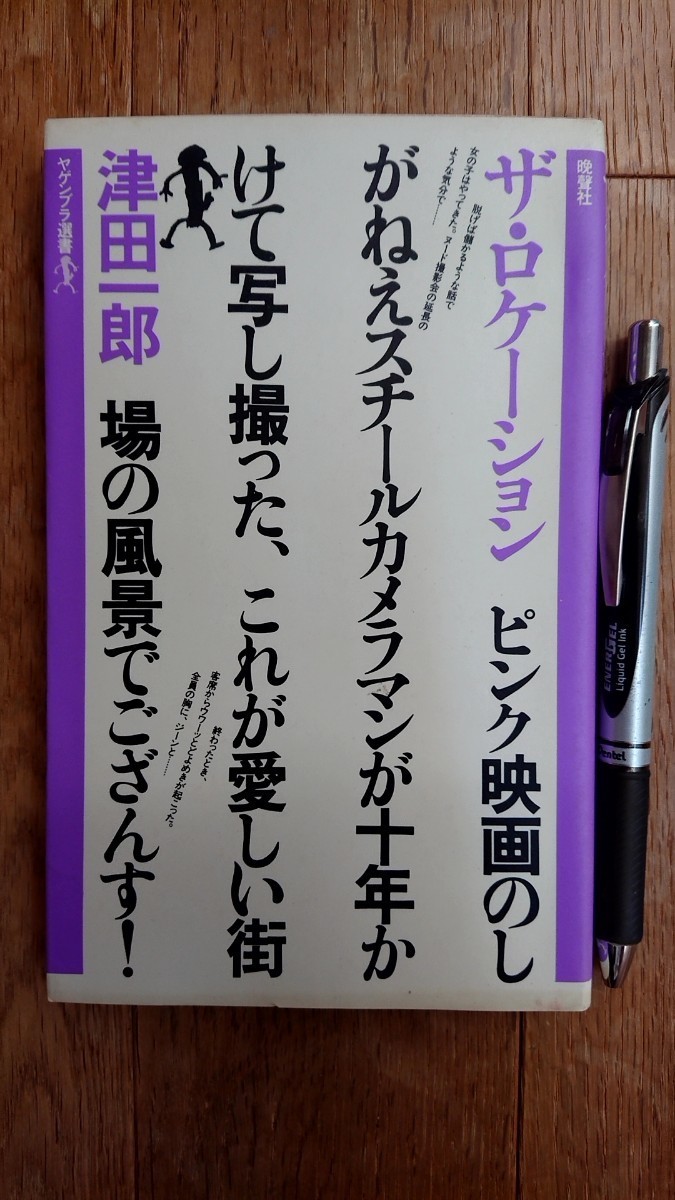 晩聲社
ザ・ロケーション ピンク映画のし
女の子はやってきた。ヌード撮影会の延長の
ような気分で……
脱げば儲かるような話で
がねえスチールカメラマンが十年か
けて写し撮った、これが愛しい街
終わったとき、
客席からウワーッとどよめきが起こった。
全員の胸に、ジーンと……
津田一郎 場の風景でござんす!
ヤゲンブラ選書
ENERGEL
Liquid Gel Ink
Pentel